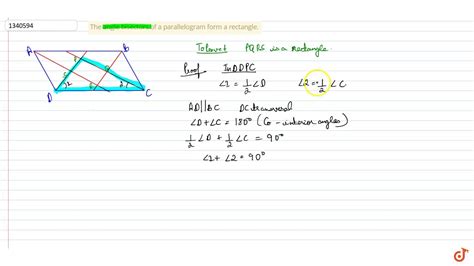 1340594
The angle bisectors of a parallelogram form a rectangle.
To Prove PQRS is a rectangle.
Proof In △DPC
∠1 = 1/2 ∠D ∠2 = 1/2 ∠C
AD||BC DC transversal
∠D + ∠C = 180° (Co-interior angles)
1/2 ∠D + 1/2 ∠C = 90°
∠1 + ∠2 = 90°
A B
D C